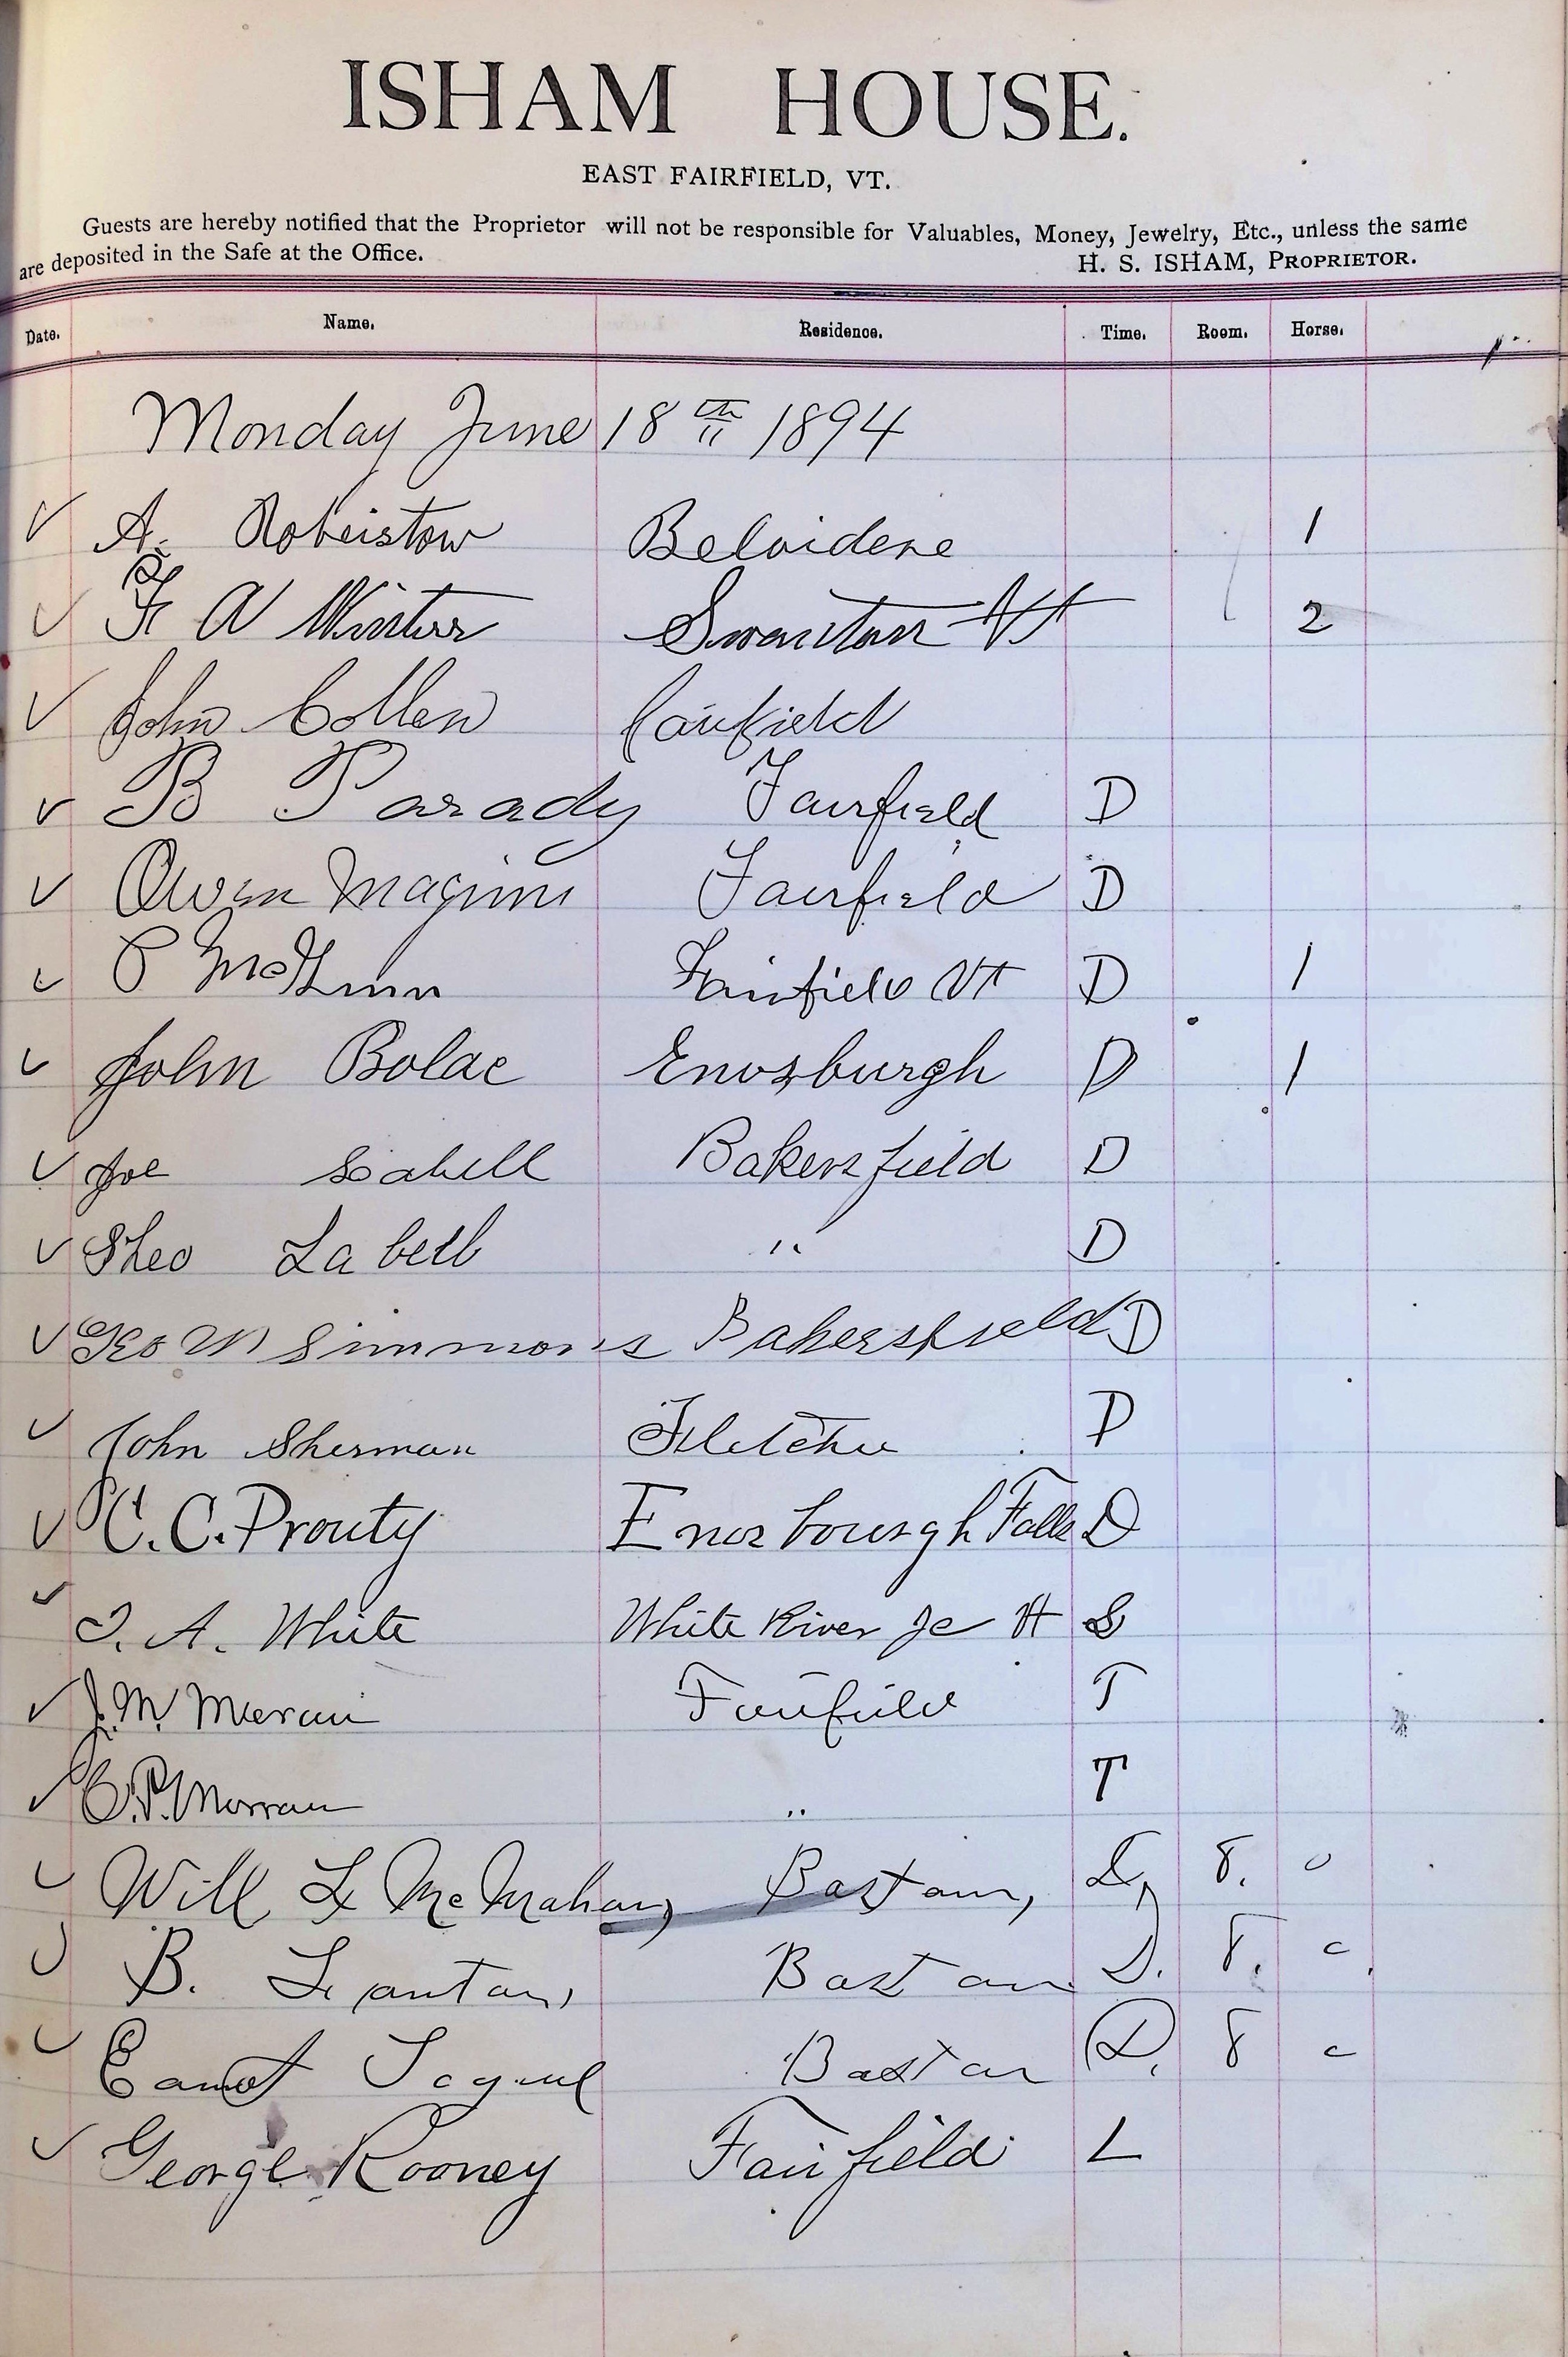 ISHAM HOUSE.
EAST FAIRFIELD, VT.
Guests are hereby notified that the Proprietor will not be responsible for Valuables, Money, Jewelry, Etc., unless the same
are deposited in the Safe at the Office. H. S. ISHAM, PROPRIETOR.
Date. Name. Residence. Time. Room. Horse.
Monday June 18th 1894
A. Belvidere 1
F A Winter Swanton Vt 2
John Collen Fairfield
B Parady Fairfield D
Owen Maginn Fairfield D
P McGinn Fairfield Vt D 1
John Bolac Enosburgh D 1
Joe Labell Bakersfield D
Theo Labell " D
Geo W Simmons Bakersfield D
John Sherman Fletcher D
C. C. Prouty Enosbourgh Falls D
A. White White River Jc Vt S
J. M. Fairfield T
C. P. Morran " T
Will L McMahan, Boston, D, 8.
B. Boston D. 8.
Boston D. 8
George Rooney Fairfield L